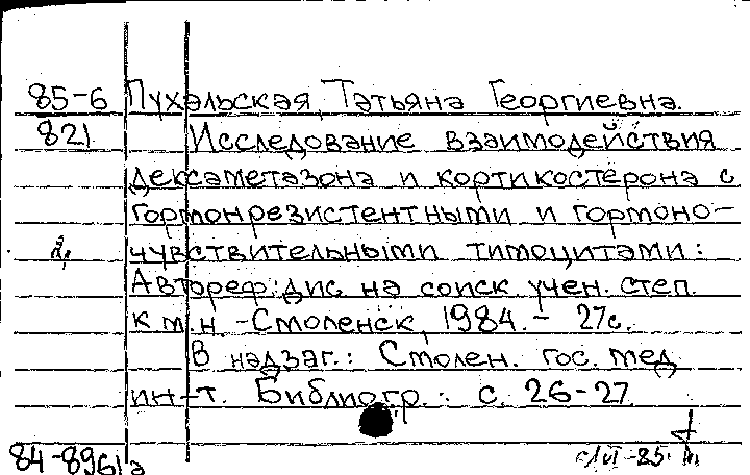 85-6 Пухальская Татьяна Георгиевна.
821 Исследование взаимодействия
дексаметазона и кортикостерона с
гормонрезистентными и гормоно-
чувствительными тимоцитами:
Автореф. дис. на соиск учен. степ.
к м.н. -Смоленск, 1984. - 27с.
В надзаг.: Смолен. гос. мед
ин-т. Библиогр.: с. 26-27
84-8961а